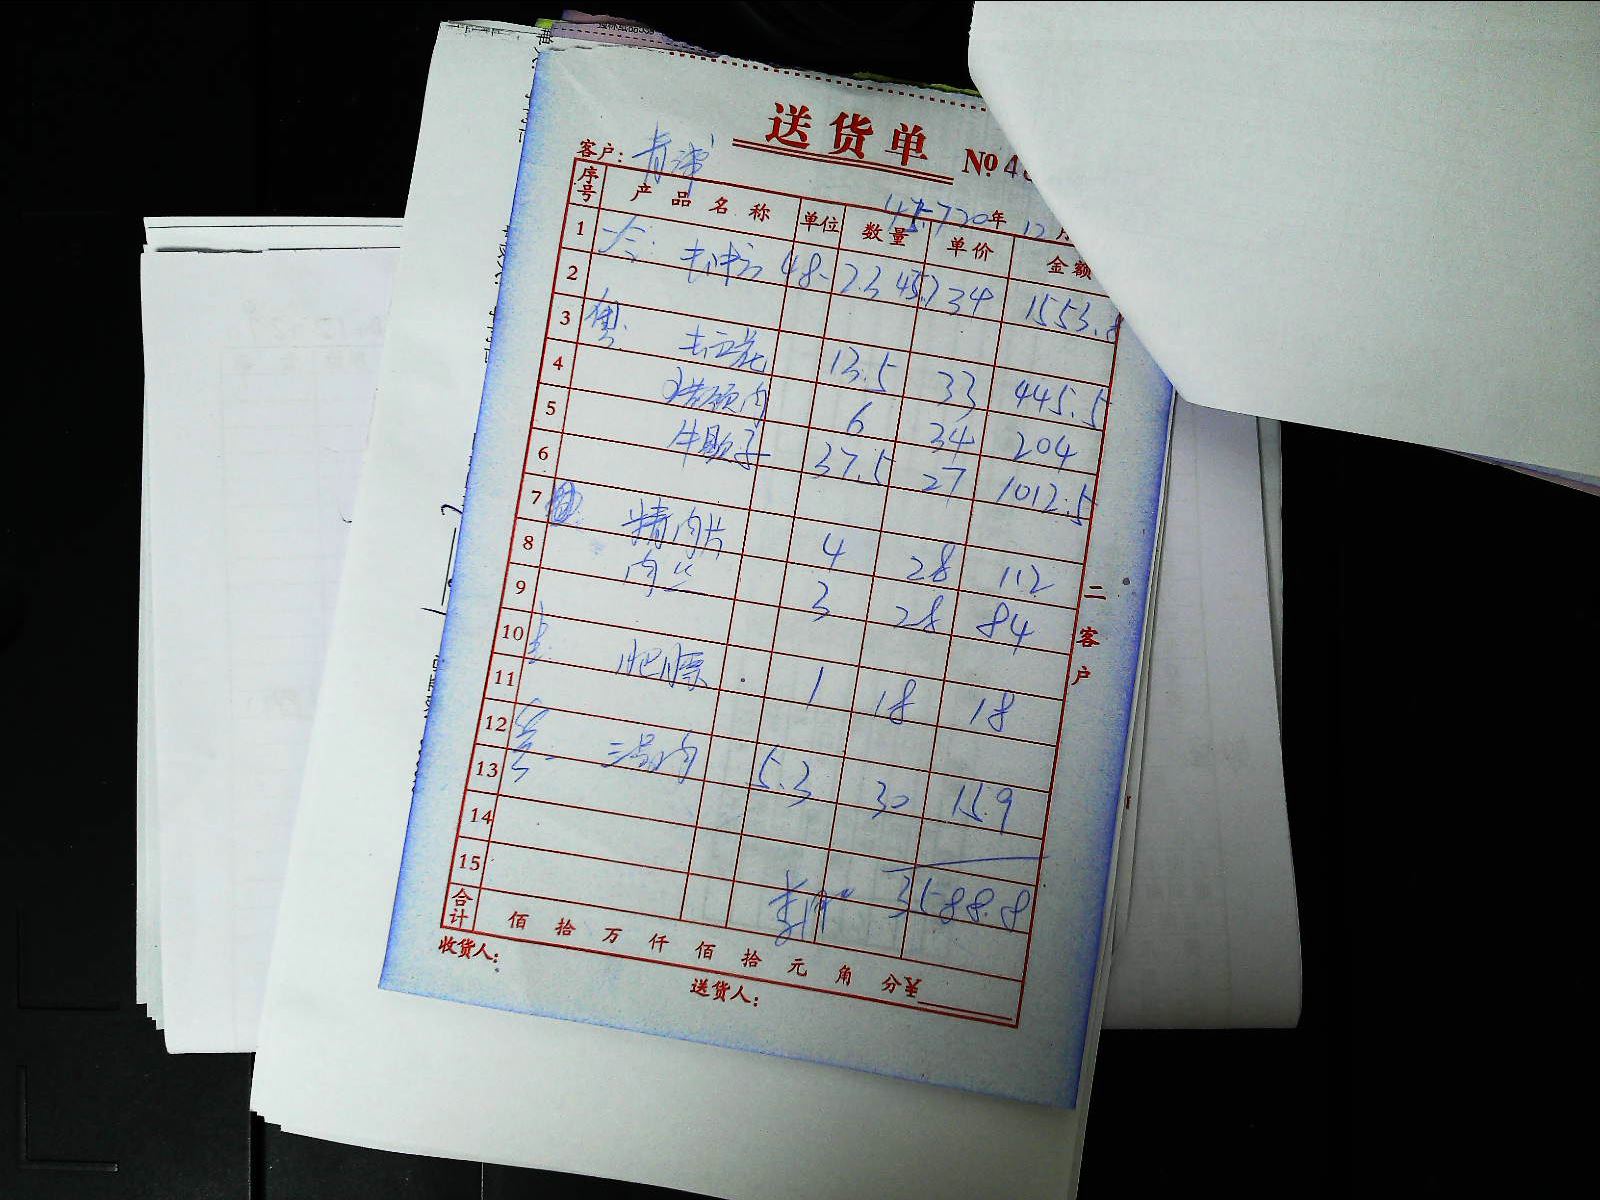 送货单 №48
客户: 青浦
20年 12月
序号 产品名称 单位 数量 单价 金额
1 48- 2.3 45.7 34 1553.8
2
3 13.5 33 445.5
4 猪颈肉 6 34 204
5 牛腱子 37.5 27 1012.5
6
7 精肉片 4 28 112
8 肉丝 3 28 84
9
10 肥膘 1 18 18
11
12 三号肉 5.3 30 159
13
14
15 3588.8
合计 佰 拾 万 仟 佰 拾 元 角 分 ¥
收货人:
送货人:
二 客户